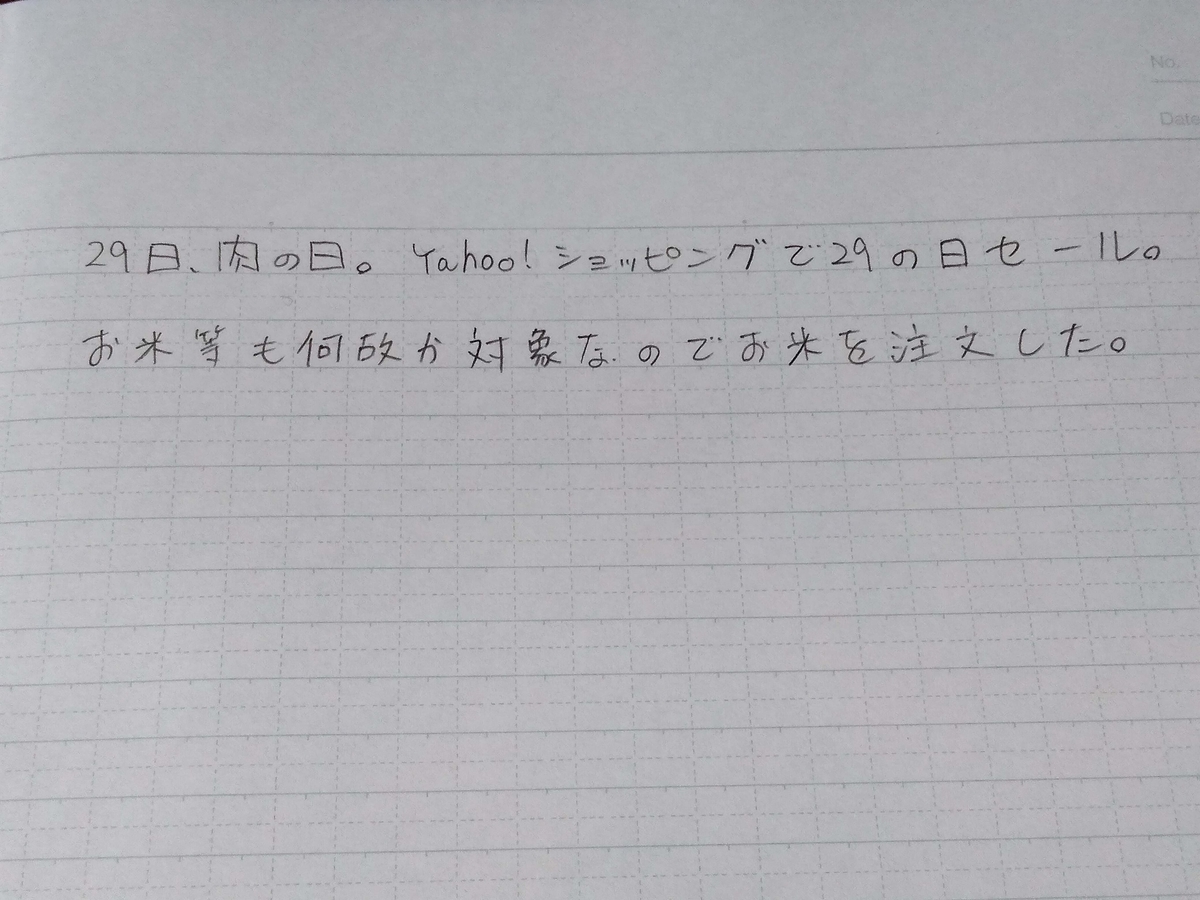 No.
Date
29日、肉の日。Yahoo!ショッピングで29の日セール。
お米等も何故か対象なのでお米を注文した。